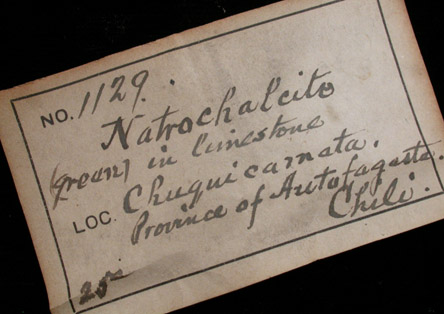 NO. 1129.
Natrochalcite
(green) in limestone
LOC. Chuquicamata.
Province of Autofagasta.
Chili.
25